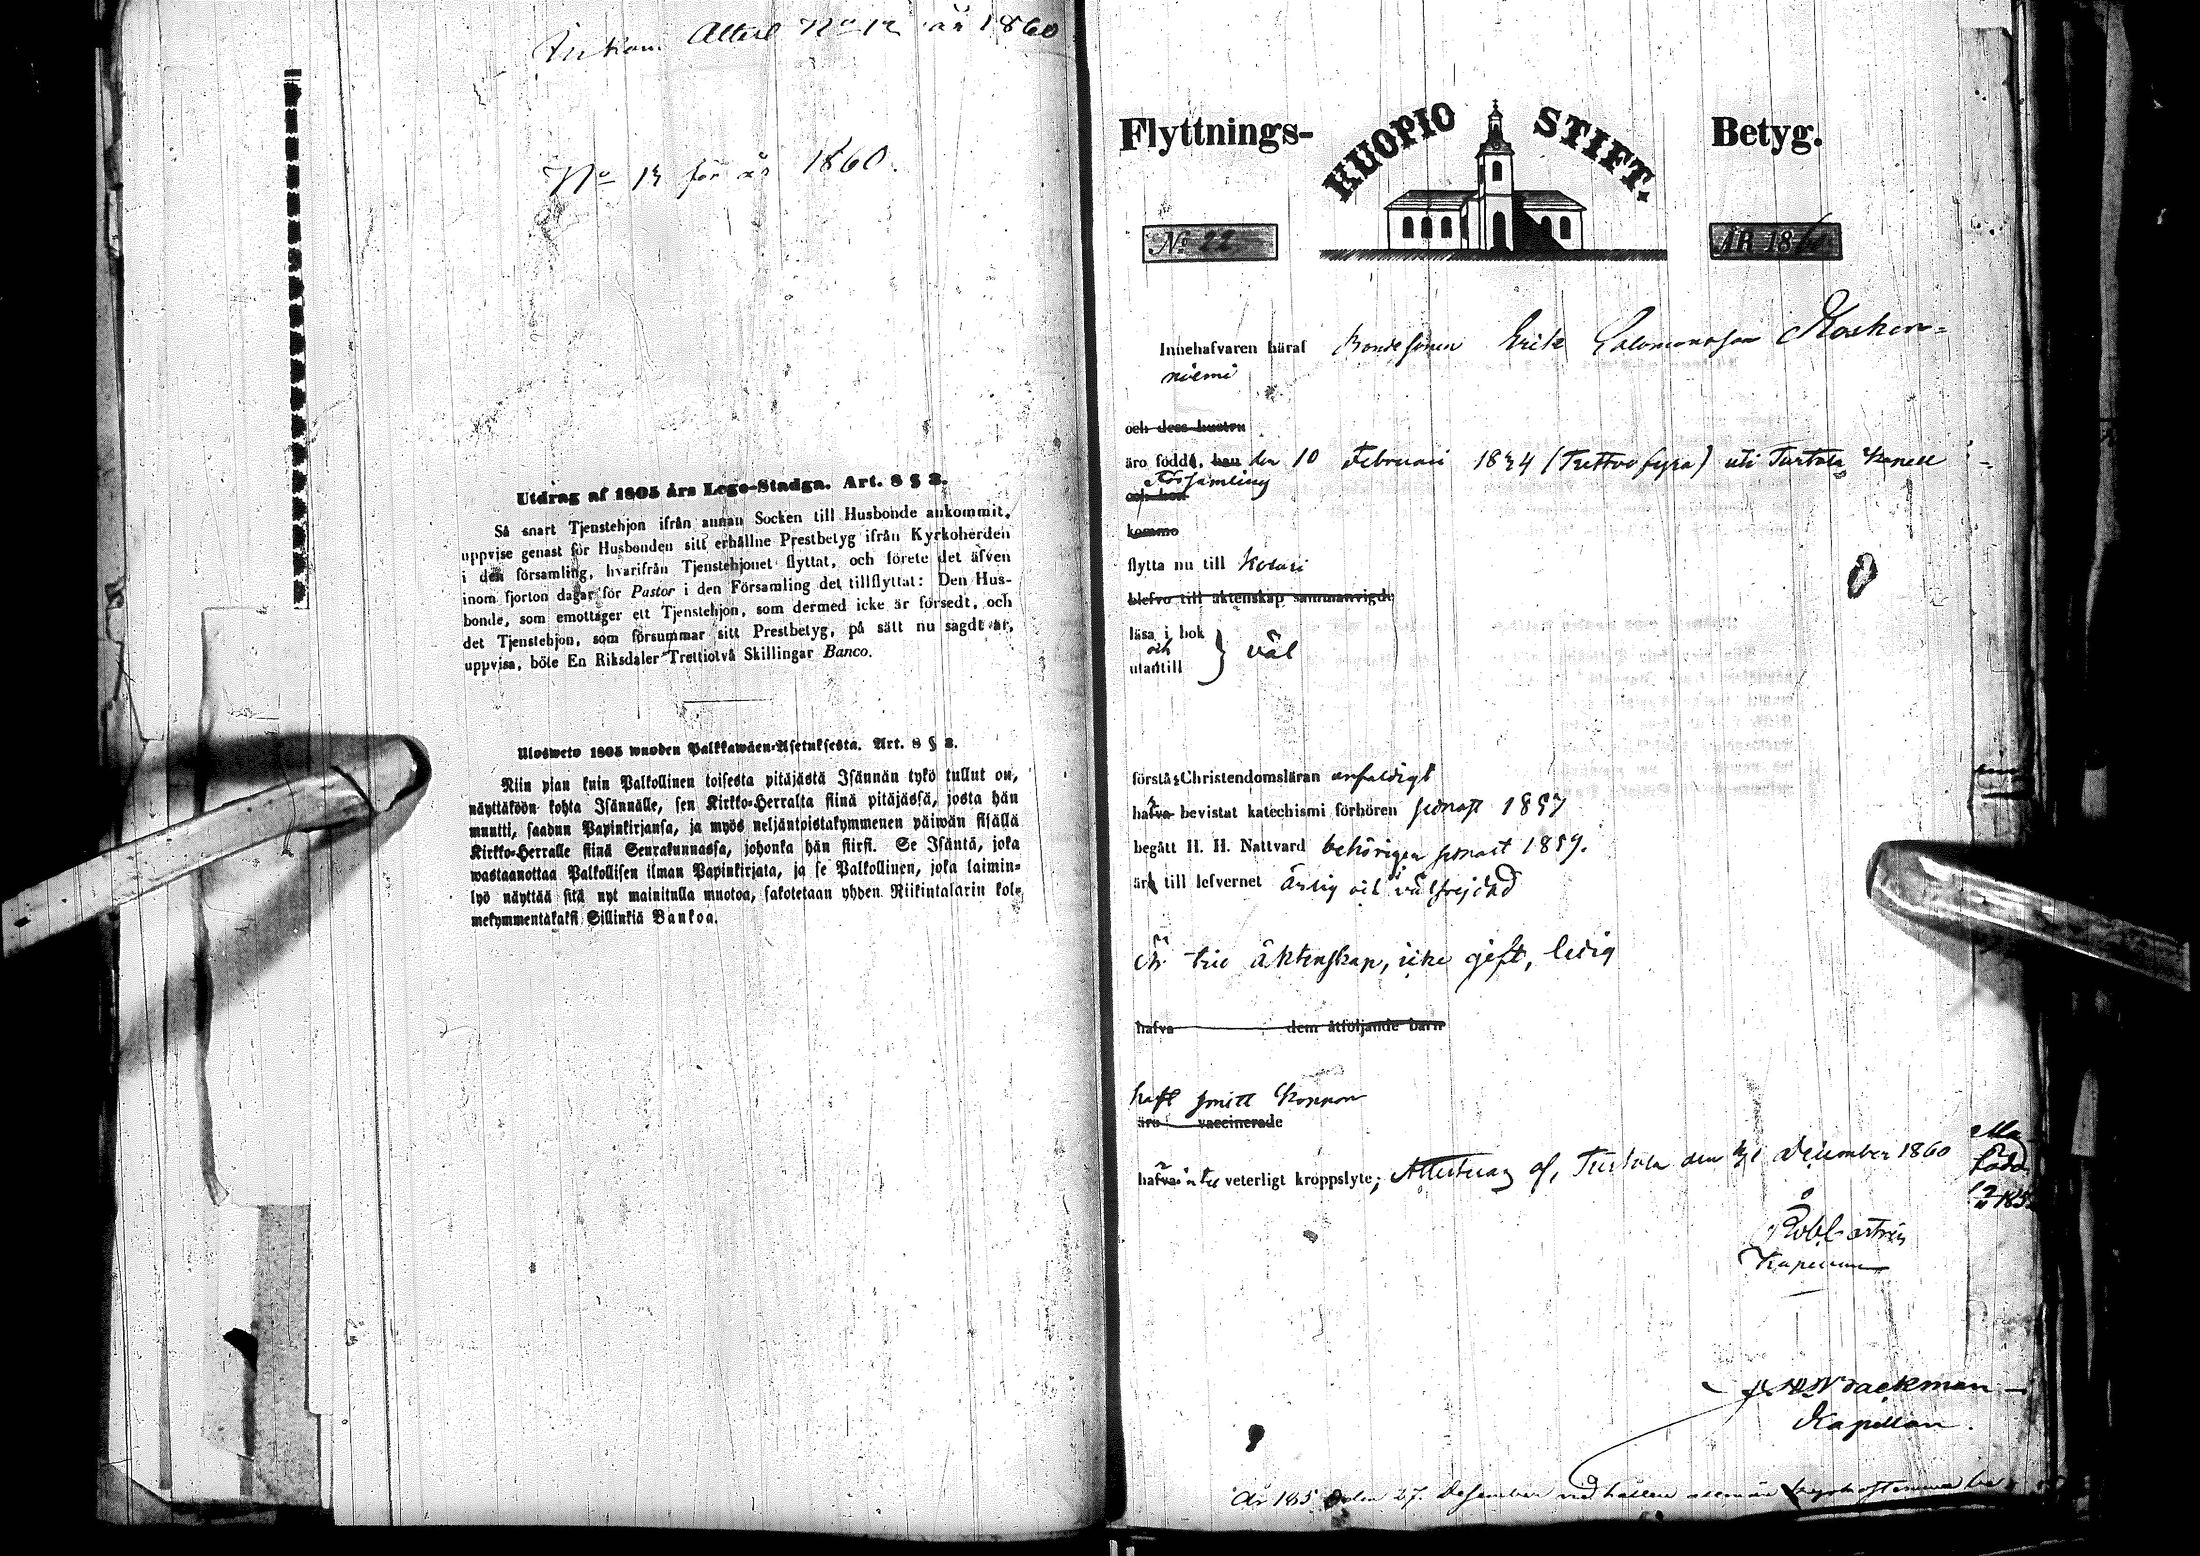 Inkom. Attest No 12 år 1860
No 13 för år 1860.
Utdrag af 1805 års Lego-Stadga. Art. 8 § 3.
Så snart Tjenstehjon ifrån annan Socken till Husbonde ankommit,
uppvise genast för Husbonden sitt erhållne Prestbetyg ifrån Kyrkoherden
i den församling, hvarifrån Tjenstehjonet flyttat, och förete det äfven
inom fjorton dagar för Pastor i den Församling det tillflyttat: Den Hus-
bonde, som emottager ett Tjenstehjon, som dermed icke är försedt, och
det Tjenstehjon, som försummar sitt Prestbetyg, på sätt nu sagdt är,
uppvisa, böte En Riksdaler Trettiotvå Skillingar Banco.
Ulosweto 1805 wuoden Palkkawäen-Asetuksesta. Art. 8 § 3.
Niin pian kuin Palkollinen toisesta pitäjästä Isännän tykö tullut on,
näyttäköön kohta Isännälle, sen Kirkko-Herralta siinä pitäjässä, josta hän
muutti, saadun Papinkirjansa, ja myös neljäntoistakymmenen päiwän sisällä
Kirkko-Herralle siinä Seurakunnassa, johonka hän siirsi. Se Isäntä, joka
wastaanottaa Palkollisen ilman Papinkirjata, ja se Palkollinen, joka laimin-
lyö näyttää sitä nyt mainitulla muotoa, sakotetaan yhden Riikintalarin kol-
mekymmentäkaksi Sillinkiä Bankoa.
Flyttnings- KUOPIO STIFT. Betyg.
No 22 ÅR 1860
Innehafvaren häraf Bondesonen Erik Salomonsson Kosken-
niemi
och dess hustru
äro födde, han den 10 Februari 1834 (Trettio fyra) uti Turtola Kapell
Församling
och hon
komme
flytta nu till Kolari
blefvo till äktenskap sammanvigde
läsa i bok
och väl
utantill
förstå Christendomsläran enfaldigt
hafva bevistat katechismi förhören senast 1857
begått H. H. Nattvard behörigen senast 1859.
är till lefvernet ärlig och välfrejdad
Är till äktenskap, icke gift, ledig
hafva dem åtföljande barn
haft smitt Koppor
äro vaccinerade
hafva inte veterligt kroppslyte; Attesteras af, Turtola den 31 December 1860
Rob Castrén
Kapellan
Wackman
Kapellan.
född
År 185 den 27. December vid hållen allmän kyrkostämma